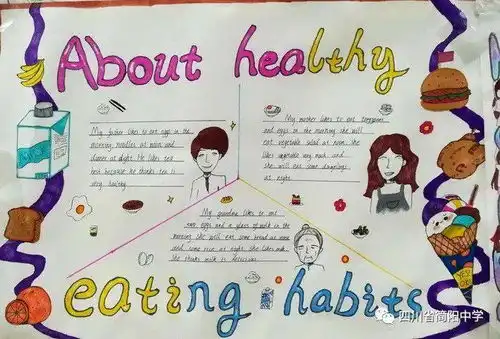 About healthy
My father likes to eat eggs in the
morning, noodles at noon and
dinner at night. He likes tea
best because he thinks tea is
very healthy
My mother likes to eat
and eggs in the morning. she will
eat vegetable salad at noon. she
likes vegetable very much. and
she will eat some dumplings
at night.
My grandma likes to eat
eggs and a glass of milk in the
morning. she will eat some bread at noon
and some rice at night. she likes milk.
She thinks milk is delicious
eating habits
四川省简阳中学